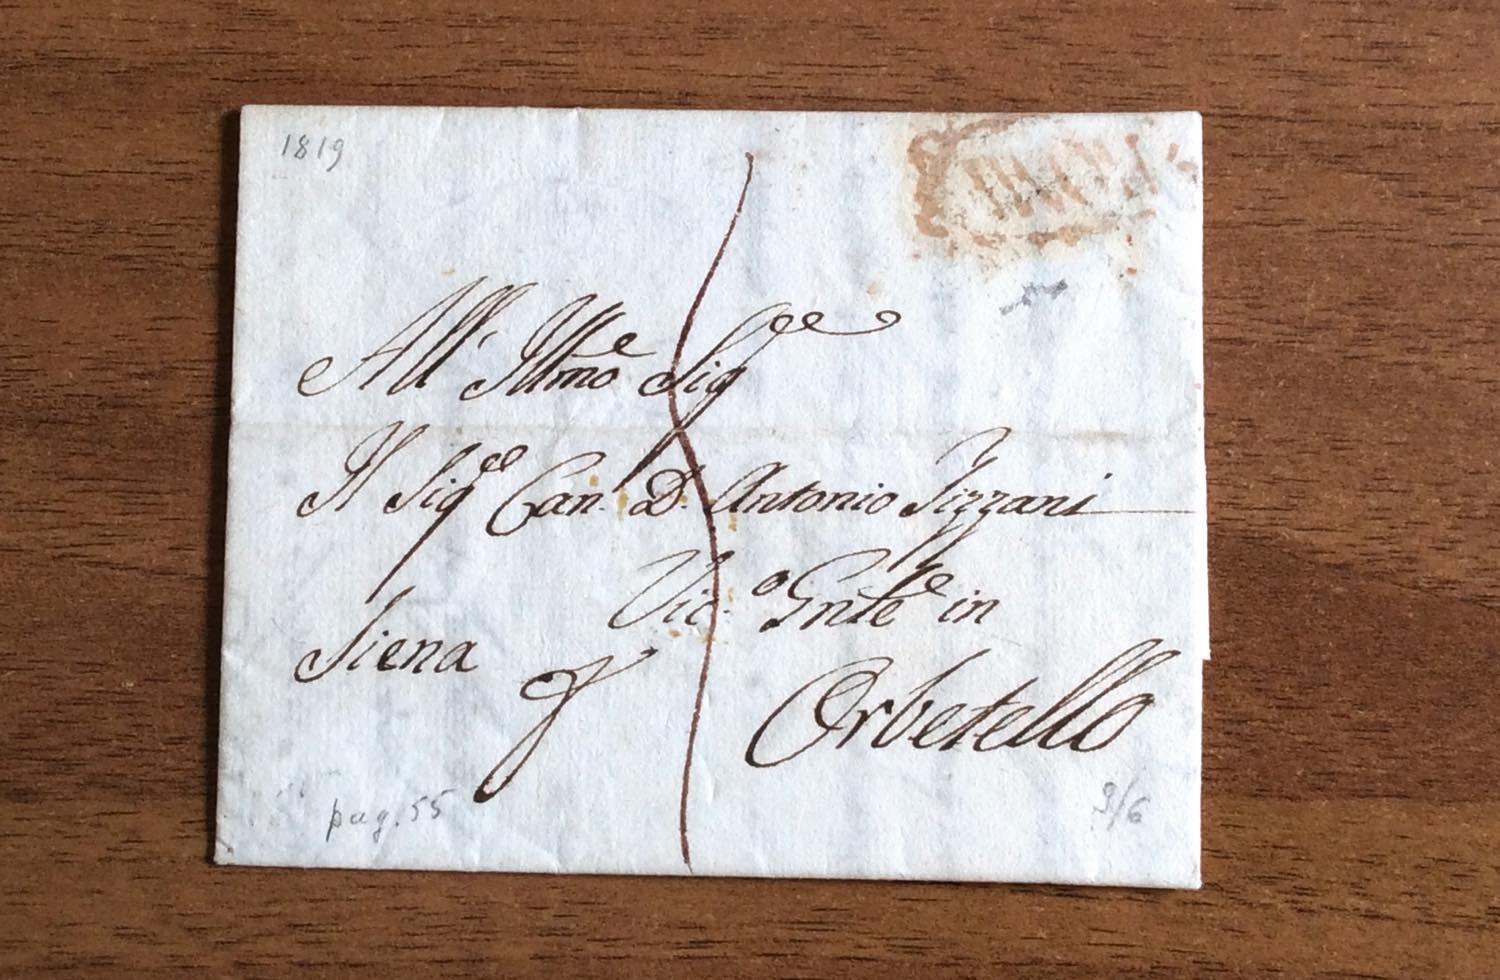 1819
All' Illmo Sig
Il Sig Can. D. Antonio Pizzani
Vic.o Gnle in
Siena
Orbetello
pag. 55
3/6